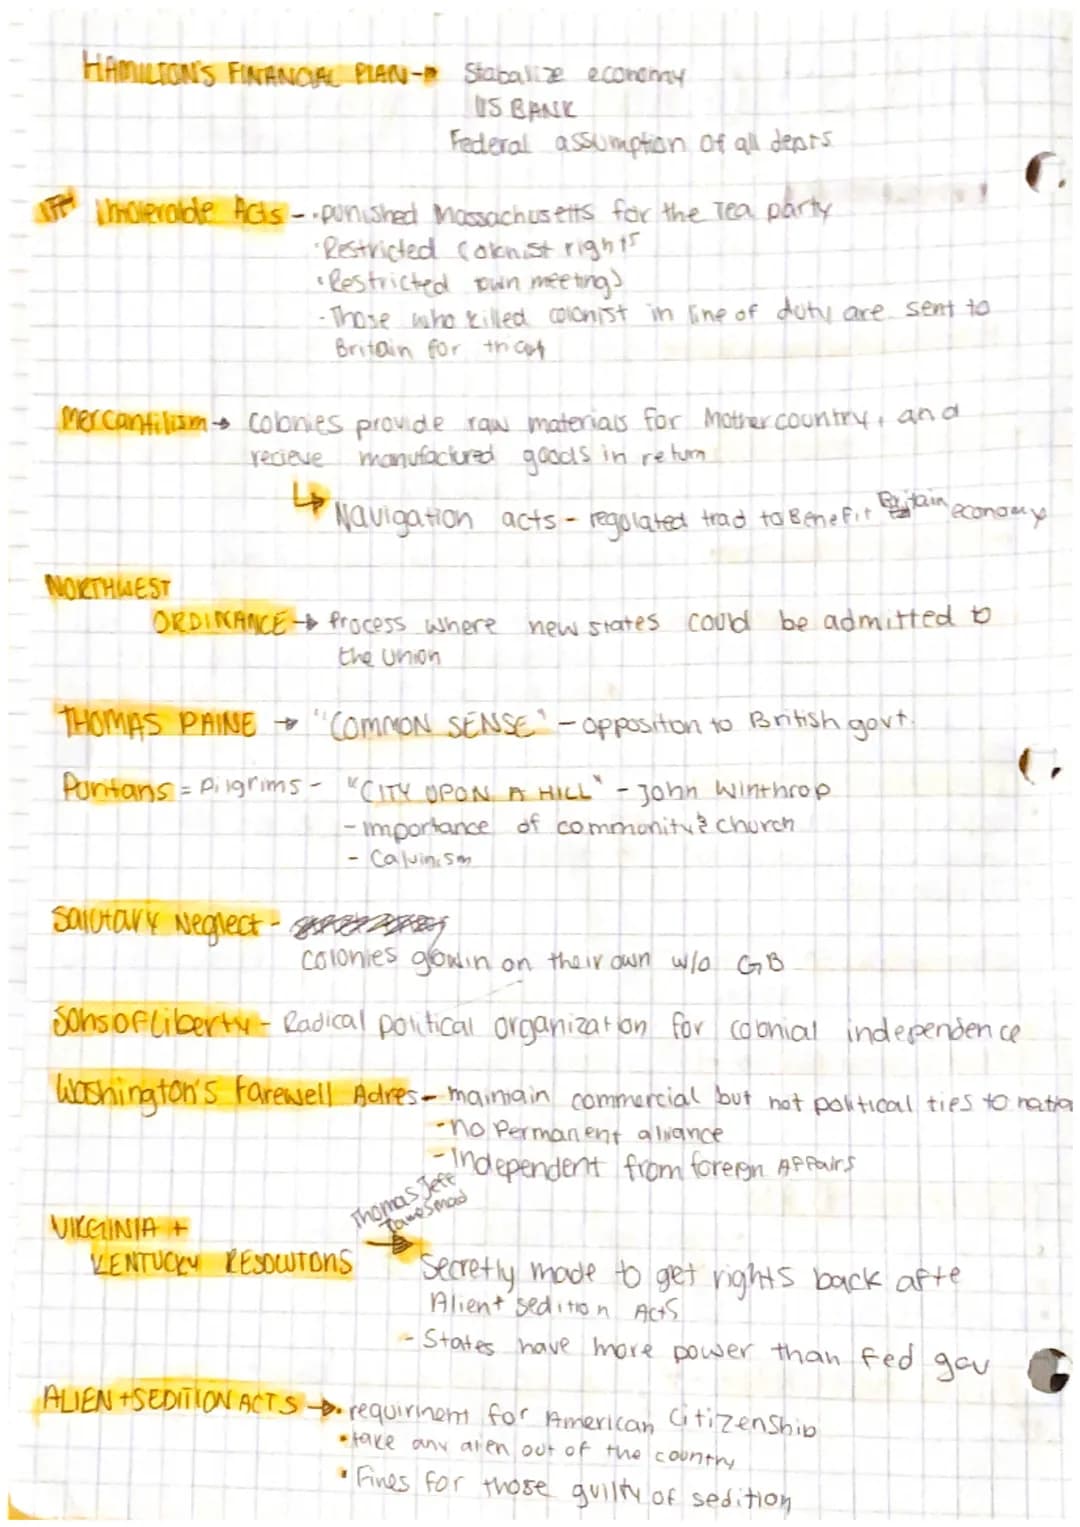 HAMILTON'S FINANCIAL PLAN → Stabalize economy
US BANK
Federal assumption of all depts
Intolerable Acts - · punished Massachusetts for the Tea party
· Restricted Colonist rights
· Restricted town meetings
- Those who killed colonist in line of duty are sent to
Britain for
Mercantilism → Colonies provide raw materials for Mother country, and
recieve manufactured goods in return
↳ Navigation acts - regolated trad to Benefit Britain economy
NORTHWEST
ORDINANCE → Process where new states could be admitted to
the Union
THOMAS PAINE → "COMMON SENSE" - opposition to British govt.
Puritans = Pilgrims - "CITY UPON A HILL" - John Winthrop
- importance of community & church
- Calvinism
Salutary Neglect -
colonies gowin on their own w/o GB
Sons of Liberty - Radical political organization for colonial independence
Washington's Farewell Adres - maintain commercial but not political ties to natio
- no Permanent aliance
- Independent from foreign Affairs
Thomas Jeff
James mad
VIRGINIA +
KENTUCKY RESOLUTONS → Secretly made to get rights back afte
Alien + sedition Acts
- States have more power than fed gov
ALIEN + SEDITION ACTS → · requirinent for American Citizenship
· take any alien out of the country
· Fines for those guilty of sedition